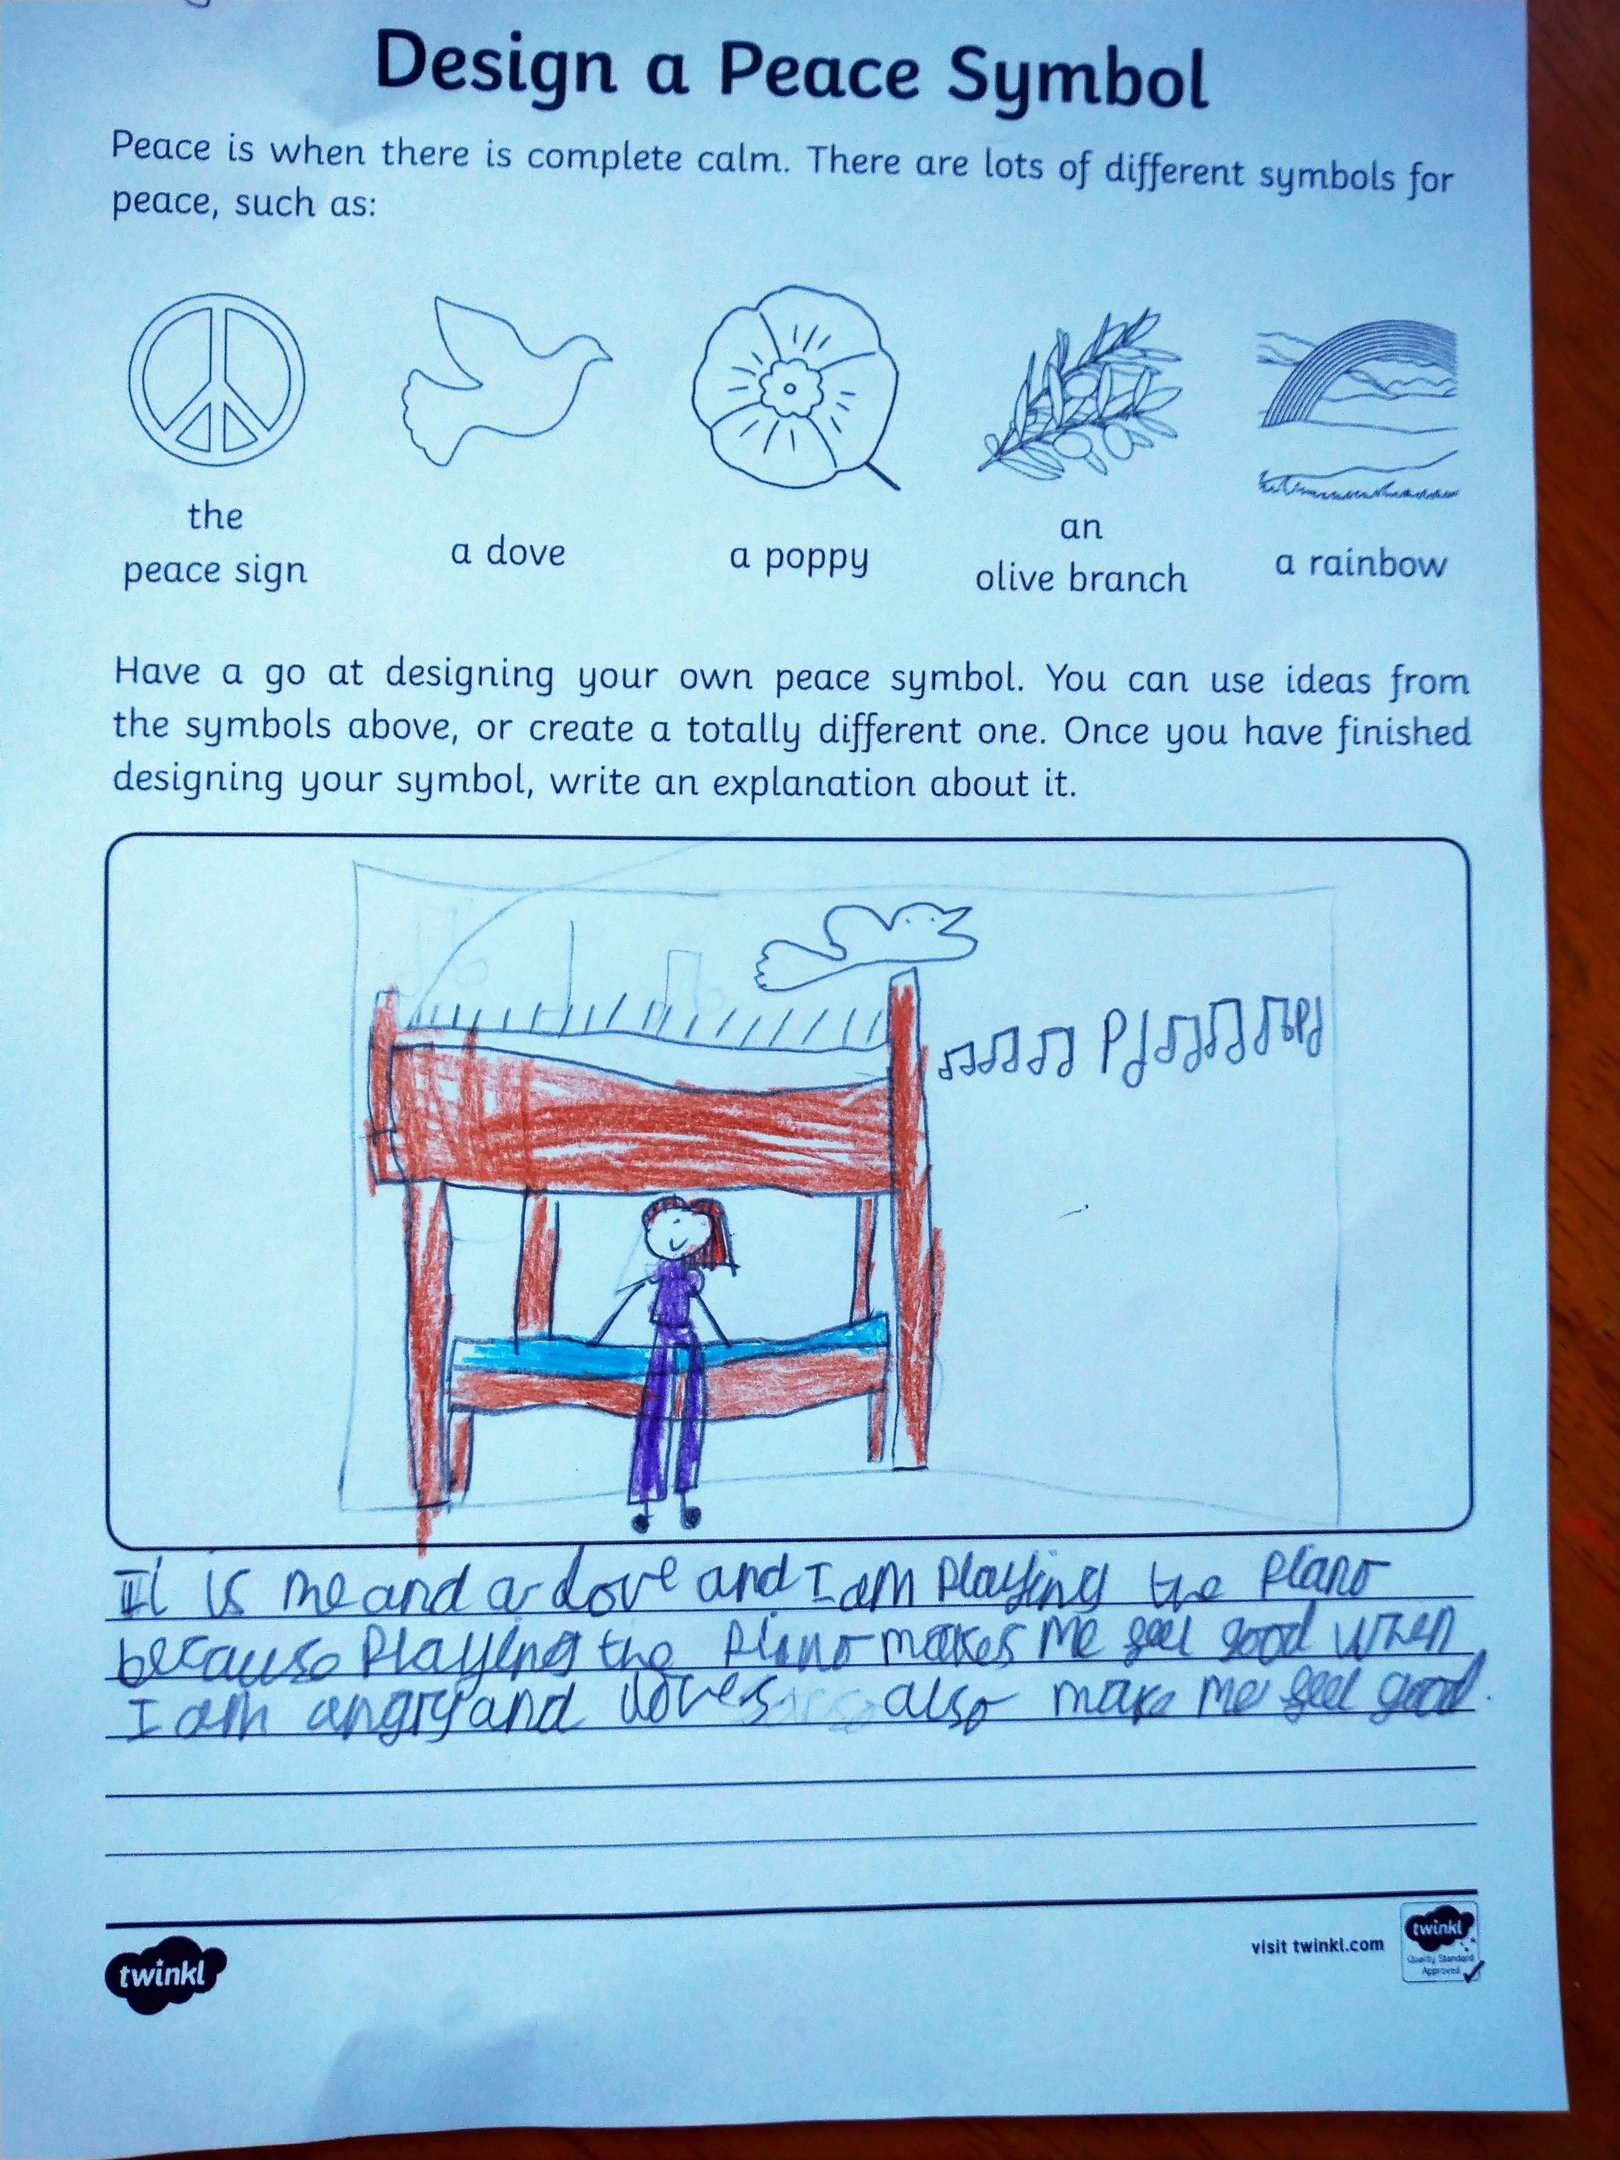 Design a Peace Symbol
Peace is when there is complete calm. There are lots of different symbols for
peace, such as:
the
peace sign
a dove
a poppy
an
olive branch
a rainbow
Have a go at designing your own peace symbol. You can use ideas from
the symbols above, or create a totally different one. Once you have finished
designing your symbol, write an explanation about it.
It is me and a dove and I am playing the piano
because playing the piano makes me feel good when
I am angry and doves also make me feel good.
twinkl
visit twinkl.com
twinkl
Quality Standard
Approved